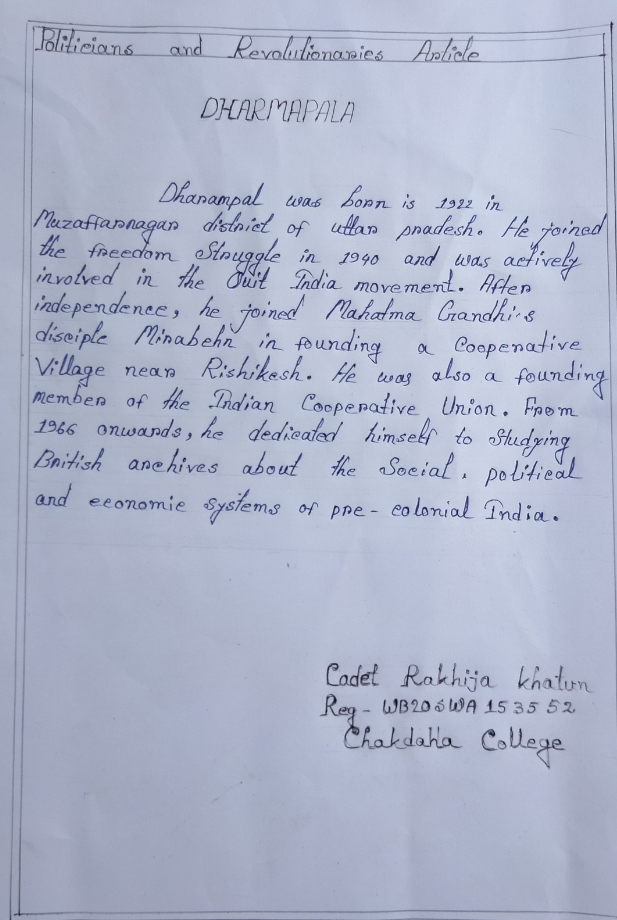 Politicians and Revolutionaries Article
DHARMAPALA
Dharampal was born is 1922 in
Muzaffarnagar district of uttar pradesh. He joined
the freedom Struggle in 1940 and was actively
involved in the Quit India movement. After
independence, he joined Mahatma Gandhi's
disciple Minabehn in founding a Cooperative
Village near Rishikesh. He was also a founding
member of the Indian Cooperative Union. From
1966 onwards, he dedicated himself to Studying
British archives about the Social, political
and economic systems of pre-colonial India.
Cadet Rakhija Khatun
Reg - WB20SWA 153552
Chakdaha College